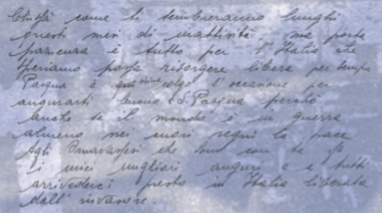 Chissà come ti sembreranno lunghi
questi mesi di inattività, ma porta
pazienza è tutto per l'Italia che
speriamo possa risorgere libera per sempre
Pasqua è vicina colgo l'occasione per
augurarti buona S. Pasqua perché
anche se il mondo è in guerra
almeno nei cuori regni la pace
Agli che sono con te
i miei migliori auguri e a tutti
arrivederci presto in Italia liberata
dall'invasore.